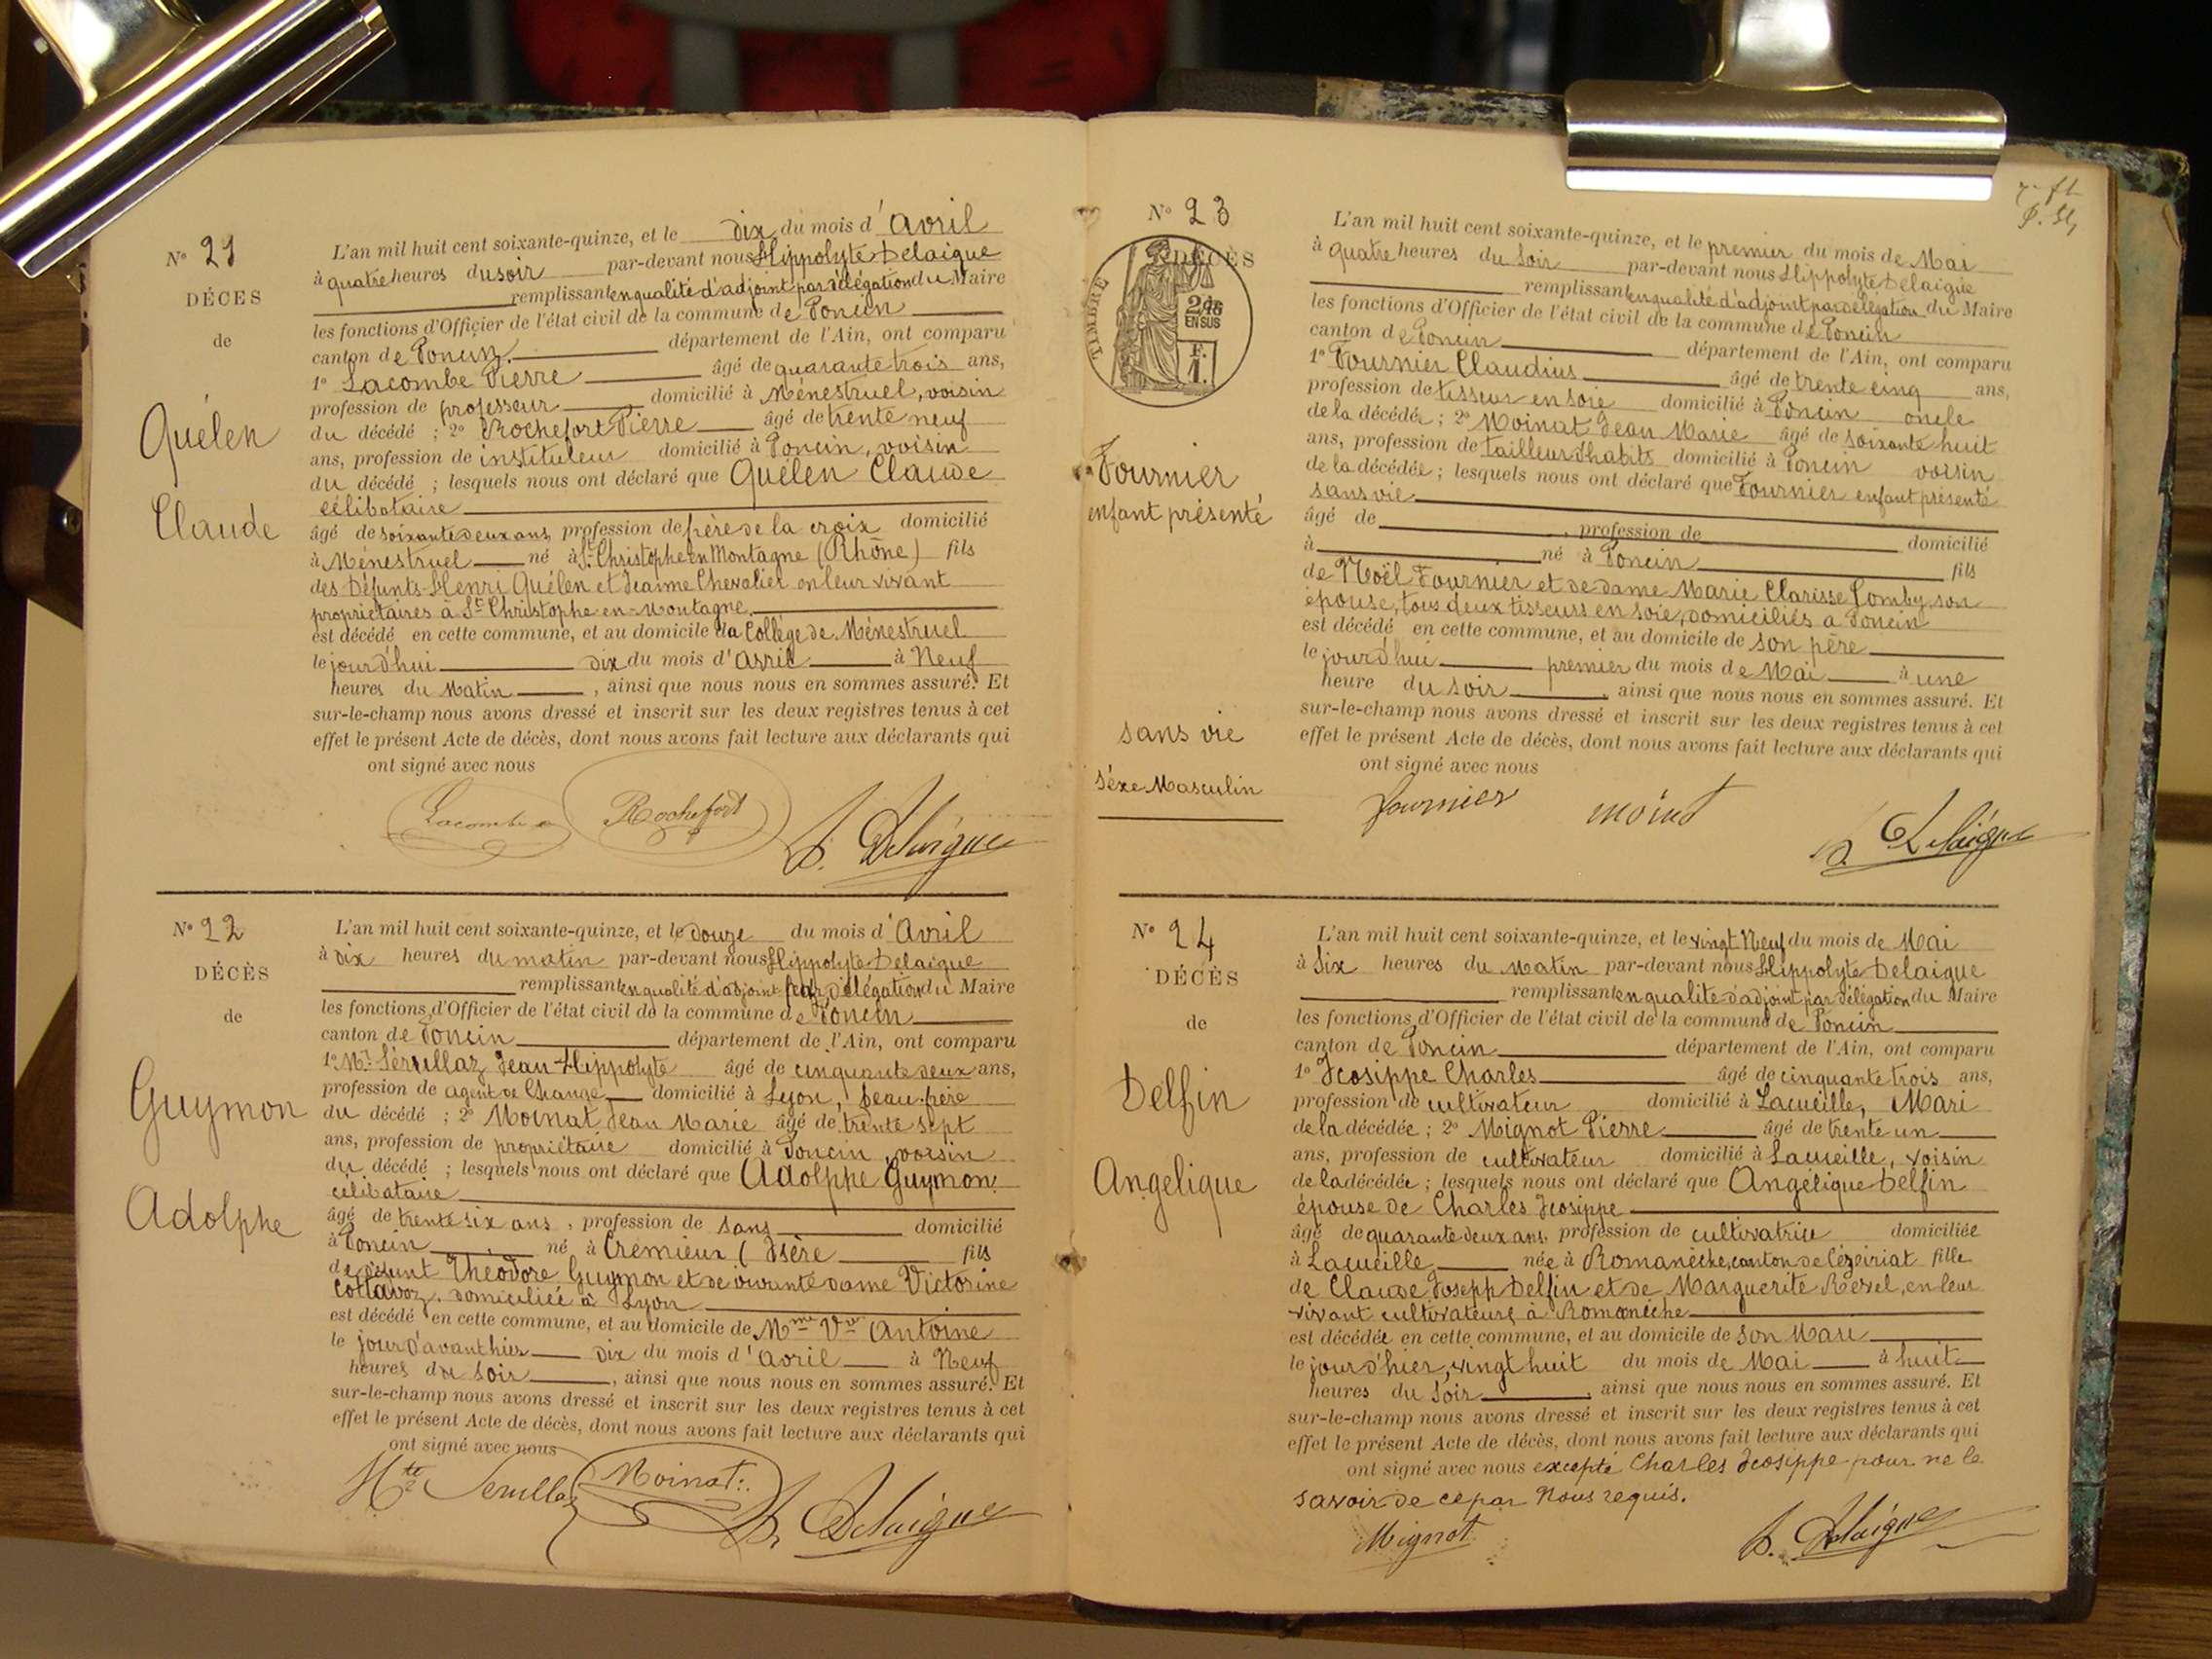 N° 21
DÉCES
de
Quélen
Claude
L'an mil huit cent soixante-quinze, et le dix du mois d'avril
à quatre heures du soir par-devant nous Hippolyte Delaigue
remplissant en qualité d'adjoint par délégation du Maire
les fonctions d'Officier de l'état civil de la commune de Poncin
canton de Poncin. département de l'Ain, ont comparu
1° Lacombe Pierre âgé de quarante trois ans,
profession de professeur domicilié à Ménestruel, voisin
du décédé ; 2° Rochefort Pierre âgé de trente neuf
ans, profession de instituteur domicilié à Poncin, voisin
du décédé ; lesquels nous ont déclaré que Quélen Claude
célibataire
âgé de soixante deux ans, profession de frère de la croix domicilié
à Ménestruel né à St Christophe en Montagne (Rhône) fils
des défunts Henri Quélen et Jeanne Chevalier en leur vivant
propriétaires à St Christophe-en-Montagne.
est décédé en cette commune, et au domicile du Collège de Ménestruel
le jourd'hui dix du mois d'avril à Neuf
heures du Matin , ainsi que nous nous en sommes assuré. Et
sur-le-champ nous avons dressé et inscrit sur les deux registres tenus à cet
effet le présent Acte de décès, dont nous avons fait lecture aux déclarants qui
ont signé avec nous
Lacombe Rochefort h. Delaigue
N° 22
DÉCÈS
de
Guymon
Adolphe
L'an mil huit cent soixante-quinze, et le douze du mois d'avril
à dix heures du matin par-devant nous Hippolyte Delaigue
remplissant en qualité d'adjoint par délégation du Maire
les fonctions d'Officier de l'état civil de la commune de Poncin
canton de Poncin département de l'Ain, ont comparu
1° Mr. Sérullaz Jean Hippolyte âgé de cinquante deux ans,
profession de agent de Change domicilié à Lyon, beau-père
du décédé ; 2° Moinat Jean Marie âgé de trente sept
ans, profession de propriétaire domicilié à Poncin, voisin
du décédé ; lesquels nous ont déclaré que Adolphe Guymon
célibataire
âgé de trente six ans, profession de sans domicilié
à Poncin né à Crémieux (Isère fils
de défunt Théodore Guymon et de vivante dame Victorine
Cottavoz, domiciliée à Lyon
est décédé en cette commune, et au domicile de Mme Vve Antoine
le jour d'avant hier dix du mois d'avril à Neuf
heures du soir , ainsi que nous nous en sommes assuré. Et
sur-le-champ nous avons dressé et inscrit sur les deux registres tenus à cet
effet le présent Acte de décès, dont nous avons fait lecture aux déclarants qui
ont signé avec nous
Hte Serullaz Moinat h. Delaigue
N° 23
DÉCÈS
TIMBRE
EN SUS
F.
1.
Fournier
enfant présenté
sans vie
Séxe Masculin
L'an mil huit cent soixante-quinze, et le premier du mois de Mai
à quatre heures du Soir par-devant nous Hippolyte Delaigue
remplissant en qualité d'adjoint par délégation du Maire
les fonctions d'Officier de l'état civil de la commune de Poncin
canton de Poncin département de l'Ain, ont comparu
1° Fournier Claudius âgé de trente cinq ans,
profession de tisseur en soie domicilié à Poncin oncle
de la décédée ; 2° Moinat Jean Marie âgé de soixante huit
ans, profession de tailleur d'habits domicilié à Poncin voisin
de la décédée ; lesquels nous ont déclaré que Fournier enfant présenté
sans vie
âgé de , profession de domicilié
à né à Poncin fils
de Noël Fournier et de dame Marie Clarisse Gomby son
épouse, tous deux tisseurs en soie, domiciliés à Poncin
est décédé en cette commune, et au domicile de son père
le jourd'hui premier du mois de Mai à une
heure du soir , ainsi que nous nous en sommes assuré. Et
sur-le-champ nous avons dressé et inscrit sur les deux registres tenus à cet
effet le présent Acte de décès, dont nous avons fait lecture aux déclarants qui
ont signé avec nous
fournier moinat h. Delaigue
N° 24
DÉCÈS
de
Delfin
Angelique
L'an mil huit cent soixante-quinze, et le vingt Neuf du mois de Mai
à Six heures du Matin par-devant nous Hippolyte Delaigue
remplissant en qualité d'adjoint par délégation du Maire
les fonctions d'Officier de l'état civil de la commune de Poncin
canton de Poncin département de l'Ain, ont comparu
1° Icosippe Charles âgé de cinquante trois ans,
profession de cultivateur domicilié à Lacueille, Mari
de la décédée ; 2° Mignot Pierre âgé de trente un
ans, profession de cultivateur domicilié à Lacueille, voisin
de la décédée ; lesquels nous ont déclaré que Angélique Delfin
épouse de Charles Icosippe
âgé de quarante deux ans, profession de cultivatrice domiciliée
à Lacueille, née à Romanèche, canton de Cézeiriat fille
de Claude Joseph Delfin et de Marguerite Revel, en leur
vivant cultivateurs à Romanèche
est décédée en cette commune, et au domicile de son Mari
le jour d'hier, vingt huit du mois de Mai à huit
heures du Soir , ainsi que nous nous en sommes assuré. Et
sur-le-champ nous avons dressé et inscrit sur les deux registres tenus à cet
effet le présent Acte de décès, dont nous avons fait lecture aux déclarants qui
ont signé avec nous excepté Charles Icosippe pour ne le
savoir de ce par Nous requis.
Mignot h. Delaigue